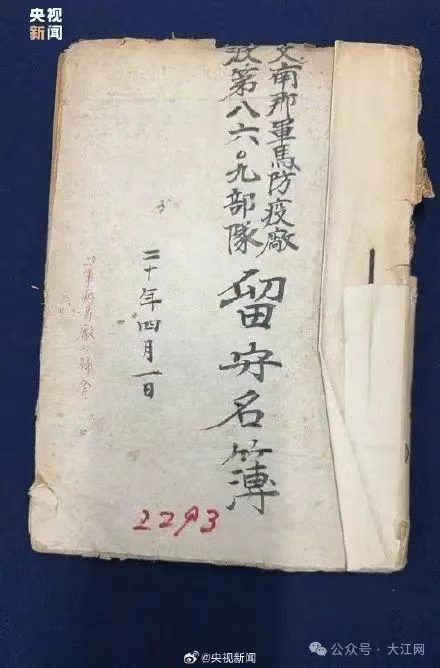 央视
新闻
支南那軍馬防疫廠
波第八六〇九部隊
留守名簿
二十年四月一日
2293
@央视新闻
公众号·大江网